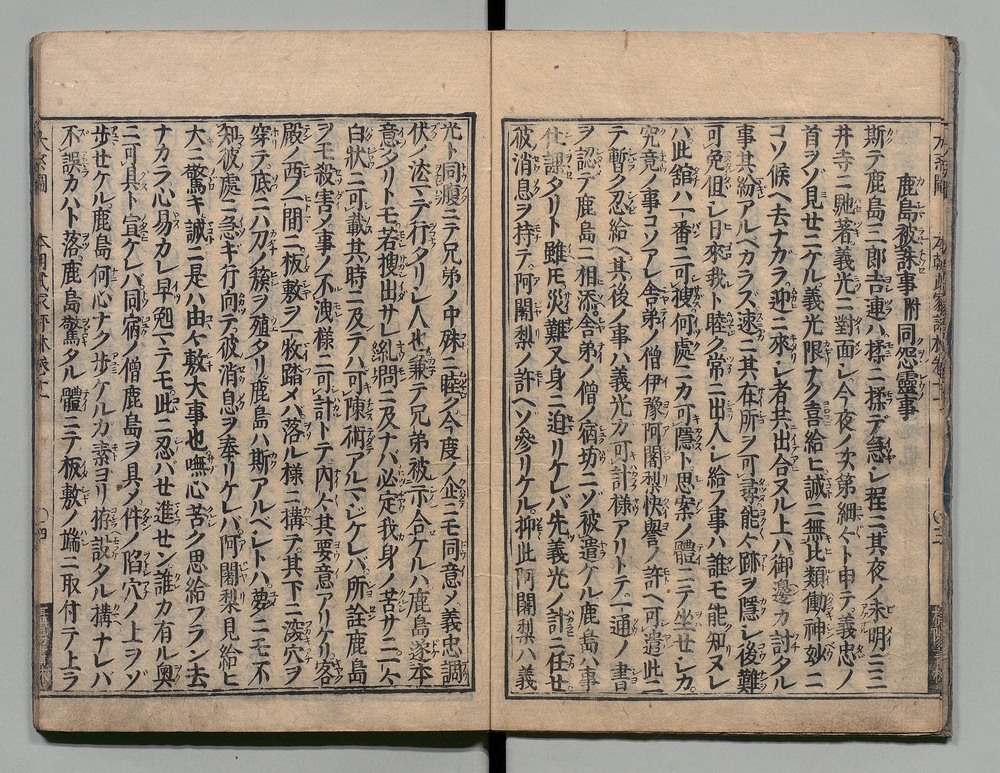 鹿島被誅事附同怨靈事
斯テ鹿島三郎吉連ハ揉ニ揉デ急シ程ニ其夜ノ未明ニ三
井寺ニ馳著義光ニ對面シ今夜ノ次第細〻ト申テ義忠ノ
首ヲゾ見セニケル義光限ナク喜給ヒ誠ニ無比類働神妙ニ
コソ候ヘ去ナガラ迎ニ來シ者共出合ヌル上ハ御邊カ討タル
事其紛アルベカラス速ニ其在所ヲ可尋能〻跡ヲ隱シ後難
可免但シ日來我ト睦ク常ニ出入シ給フ事ハ誰モ能知ヌレ
ハ此舘ハ一番ニ可搜何處ニカ可隱ト思案ノ體ニテ坐セシカ
究竟ノ事コソアレ舎弟ノ僧伊豫阿闍梨快譽ノ許ヘ可遣此ニ
テ暫ク忍給ヘ其後ノ事ハ義光カ可計様アリトテ一通ノ書
ヲ認デ鹿島ニ相添舎弟ノ僧ノ宿坊ニゾ被遣ケル鹿島ハ事
仕課タリト雖モ災難又身ニ迫リケレバ先義光ノ計ニ任セ
彼消息ヲ持テ阿闍梨ノ許ヘソ參リケル抑此阿闍梨ハ義
光ト同腹ニテ兄弟ノ中殊ニ睦ク今度ノ企ニモ同意シ義忠調
伏ノ法マデ行タリシ人也兼テ兄弟被示合ケルハ鹿島逐本
意タリトモ若搜出サレ糺問ニ及ナバ必定我身ノ苦サニ一〻
白狀ニ可載其時ニ及テハ可陳術アルマジケレバ所詮鹿島
ヲモ殺害シ事ノ不洩様ニ可計トテ内〻其要意アリケリ客
殿ノ西ノ一間ニ板敷ヲ一枚踏メハ落ル様ニ構テ其下ニ深穴ヲ
穿テ底ニハ刀ノ簇ヲ殖タリ鹿島ハ斯アルベシトハ夢ニモ不
知彼處ニ急ギ行向テ彼消息ヲ奉リケレバ阿闍梨見給ヒ
大ニ驚キ誠ニ是ハ由〻敷大事也嘸心苦ク思給フラン去
ナカラ心易カレ早兎マデモ此ニ忍バセ進セン誰カ有ル奥
ニ可具ト宣ケレバ同宿ノ僧鹿島ヲ具シ件ノ陷穴ノ上ヲゾ
歩セケル鹿島何心ナク歩ケルカ素ヨリ拵設タル構ナレバ
不誤カハト落鹿島驚タル體ニテ板敷ノ端ニ取付テ上ラ